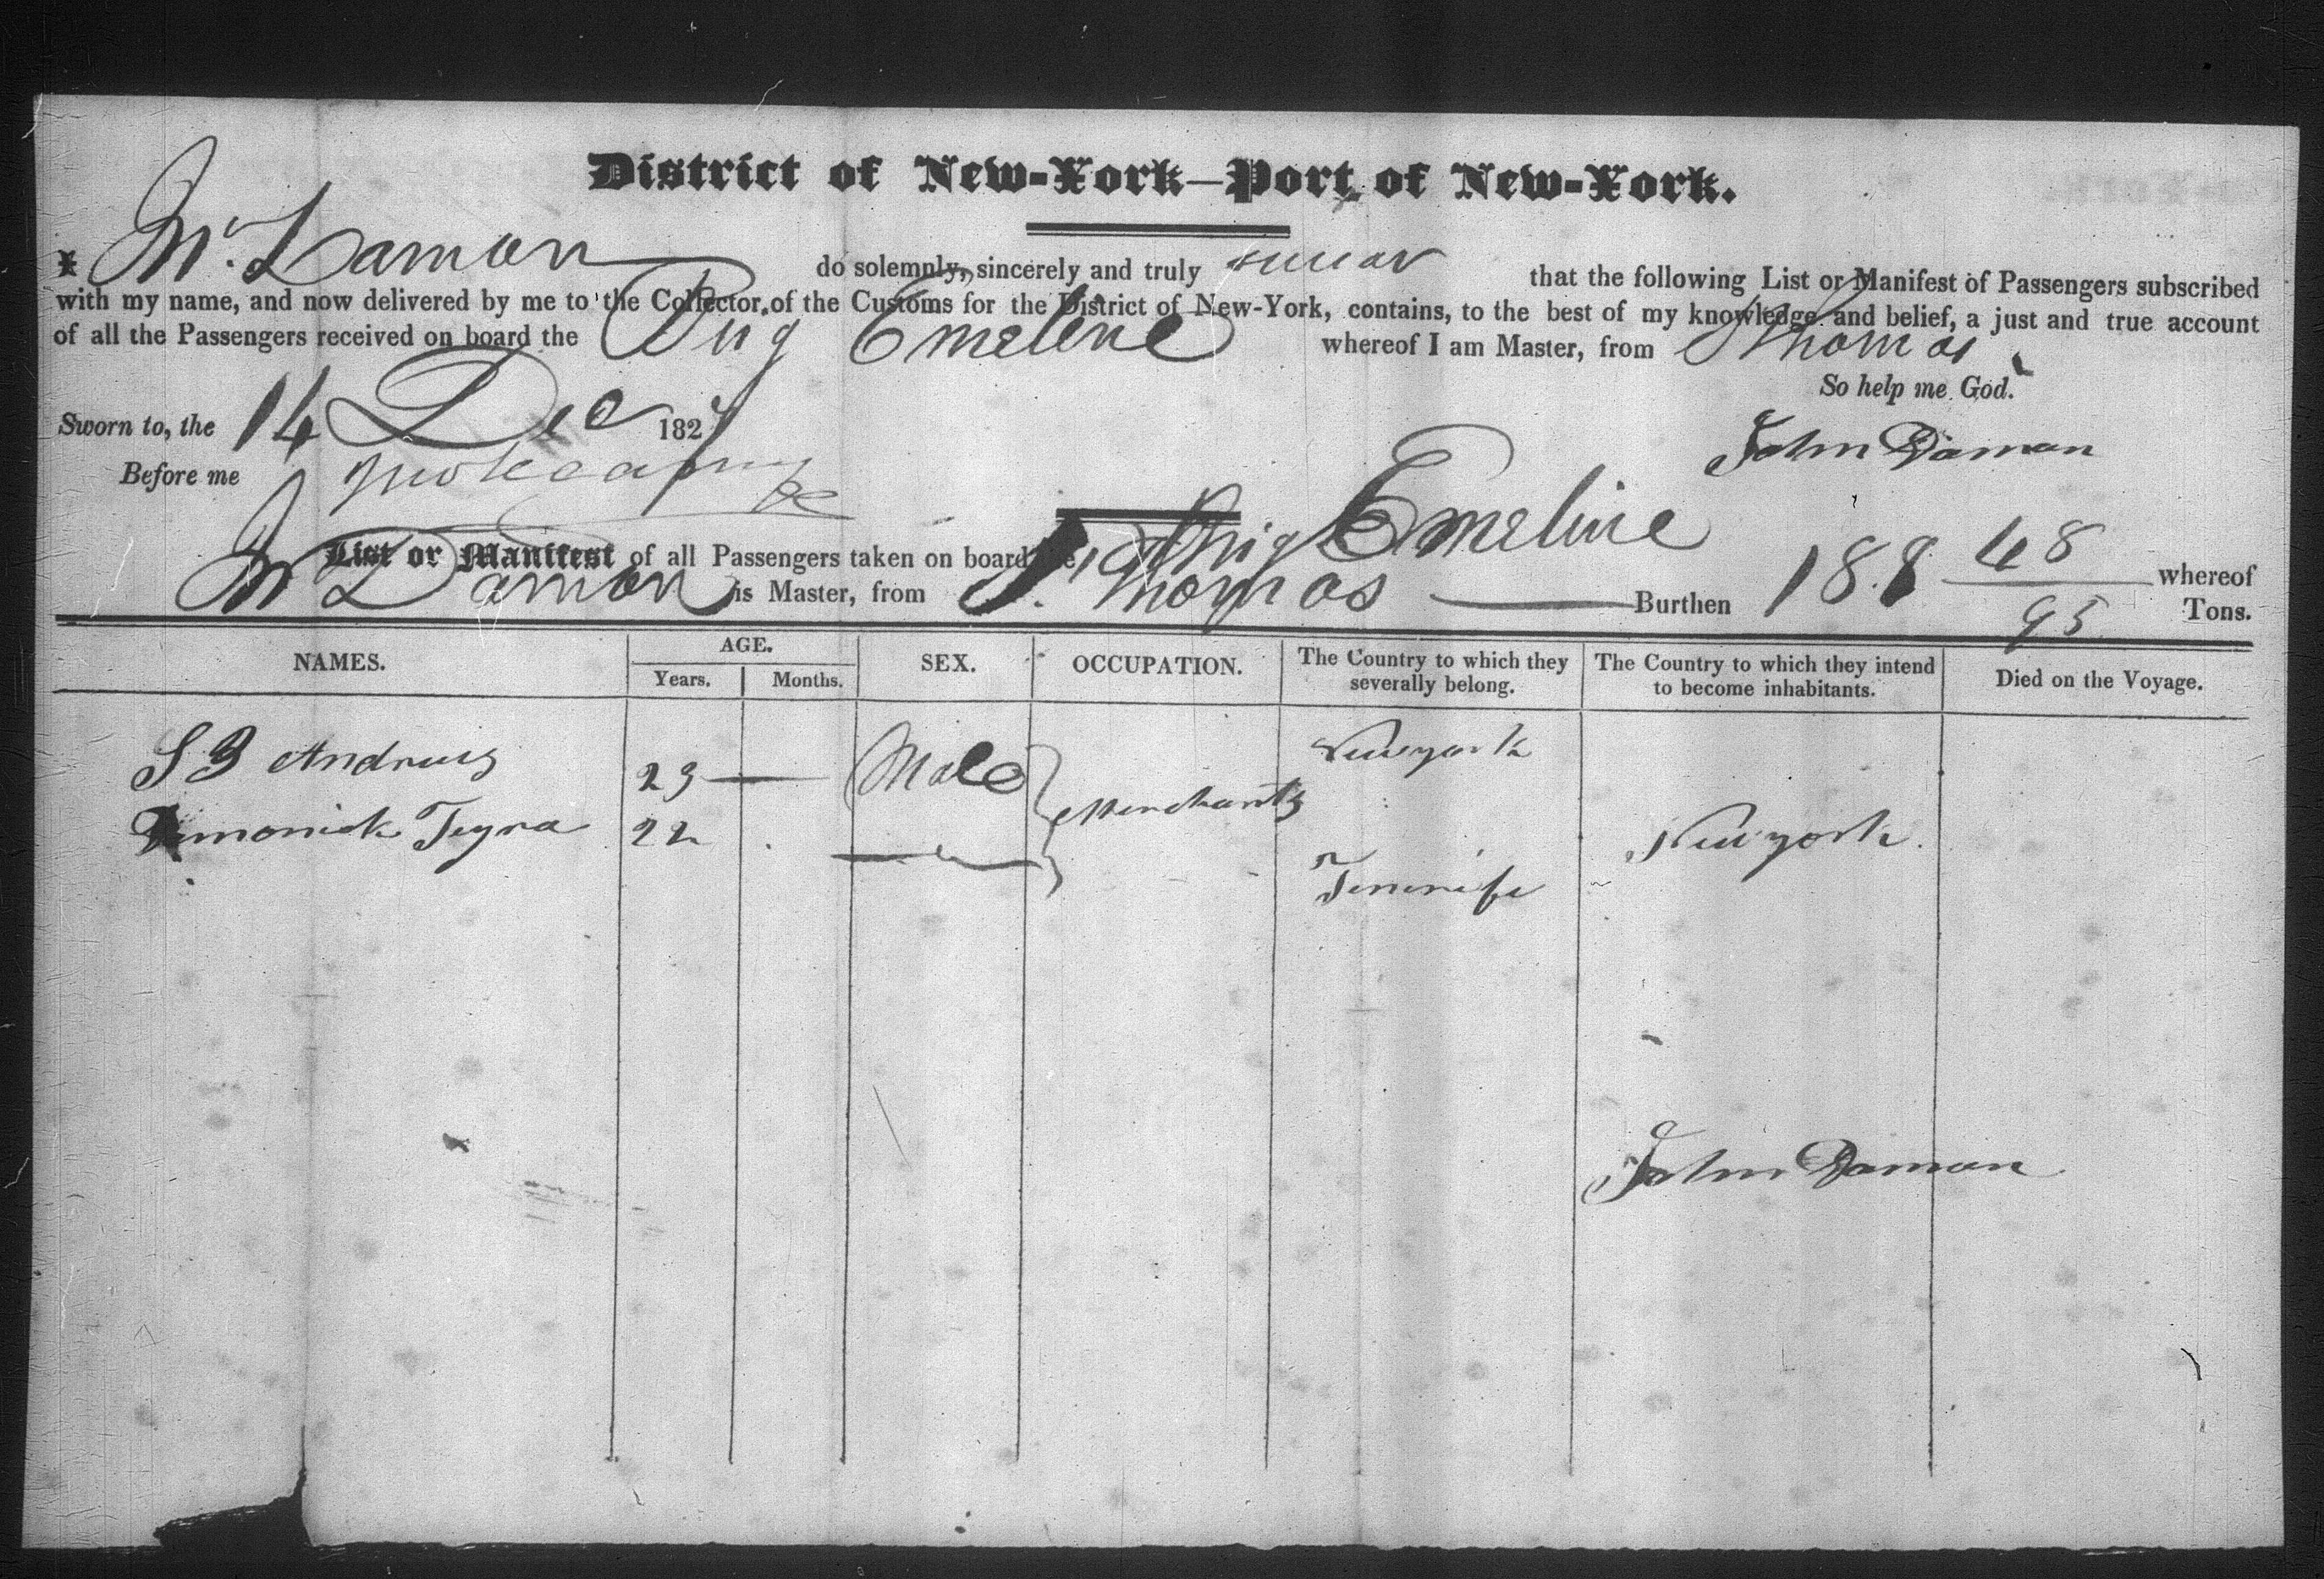 District of New-York—Port of New-York.
I Mr. Damon do solemnly, sincerely and truly swear that the following List or Manifest of Passengers subscribed
with my name, and now delivered by me to the Collector of the Customs for the District of New-York, contains, to the best of my knowledge and belief, a just and true account
of all the Passengers received on board the Brig Emelene whereof I am Master, from St Thomas
So help me God.
Sworn to, the 14 Dec 1827
John Damon
Before me
List or Manifest of all Passengers taken on board the Brig Emeline whereof
Mr Damon is Master, from St. Thomas Burthen 188 48/95 Tons.
NAMES. AGE. Years. Months. SEX. OCCUPATION. The Country to which they severally belong. The Country to which they intend to become inhabitants. Died on the Voyage.
S B Andrus 29 — Male Merchants Newyork
Tegra 22 Teneriffe Newyork.
John Damon